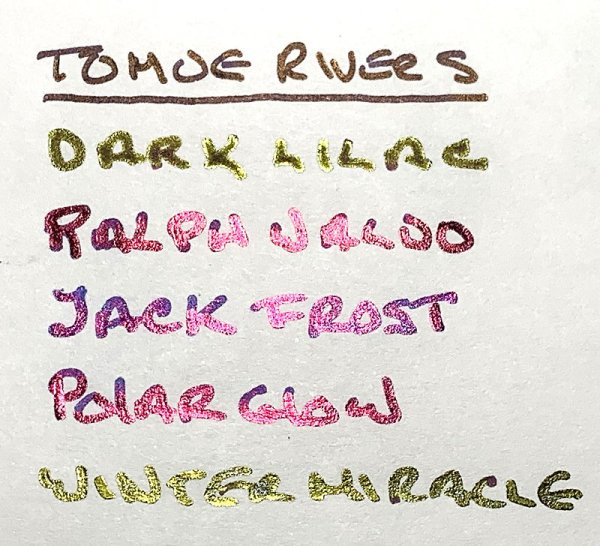 TOMOE RIVER S
DARK LILAC
RALPH WALDO
JACK FROST
POLAR GLOW
WINTER MIRACLE